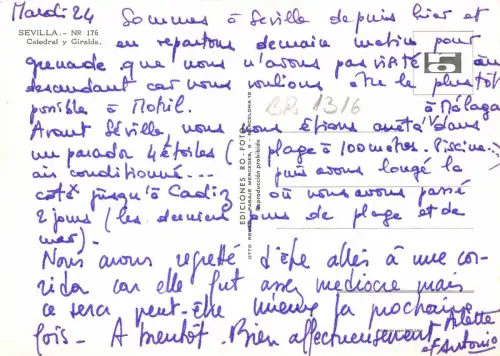 Mardi 24 Sommes à Séville depuis hier et
SEVILLA.- Nº 176
Catedral y Giralda.
en repartons demain matin pour
grenade que nous n'avons pas visité en
descendant car nous voulions être le plus tôt
possible à Motril.
BR 1316
à Málaga
Avant Séville, nous nous étions arrêté dans
un parador 4 étoiles ( plage à 100 mètres. Piscine
air conditionné... puis avons longé la
côte jusqu'à Cadiz où nous avons passé
2 jours (les derniers jours de plage et de
mer).
Nous avons regretté d'être allés à une cor-
rida car elle fut assez médiocre mais
ce sera peut-être mieux la prochaine
fois - A bientôt. Bien affectueusement
Arlette
et Antonio
EDICIONES RO-FOTO
BARCELONA
Reproducción prohibida